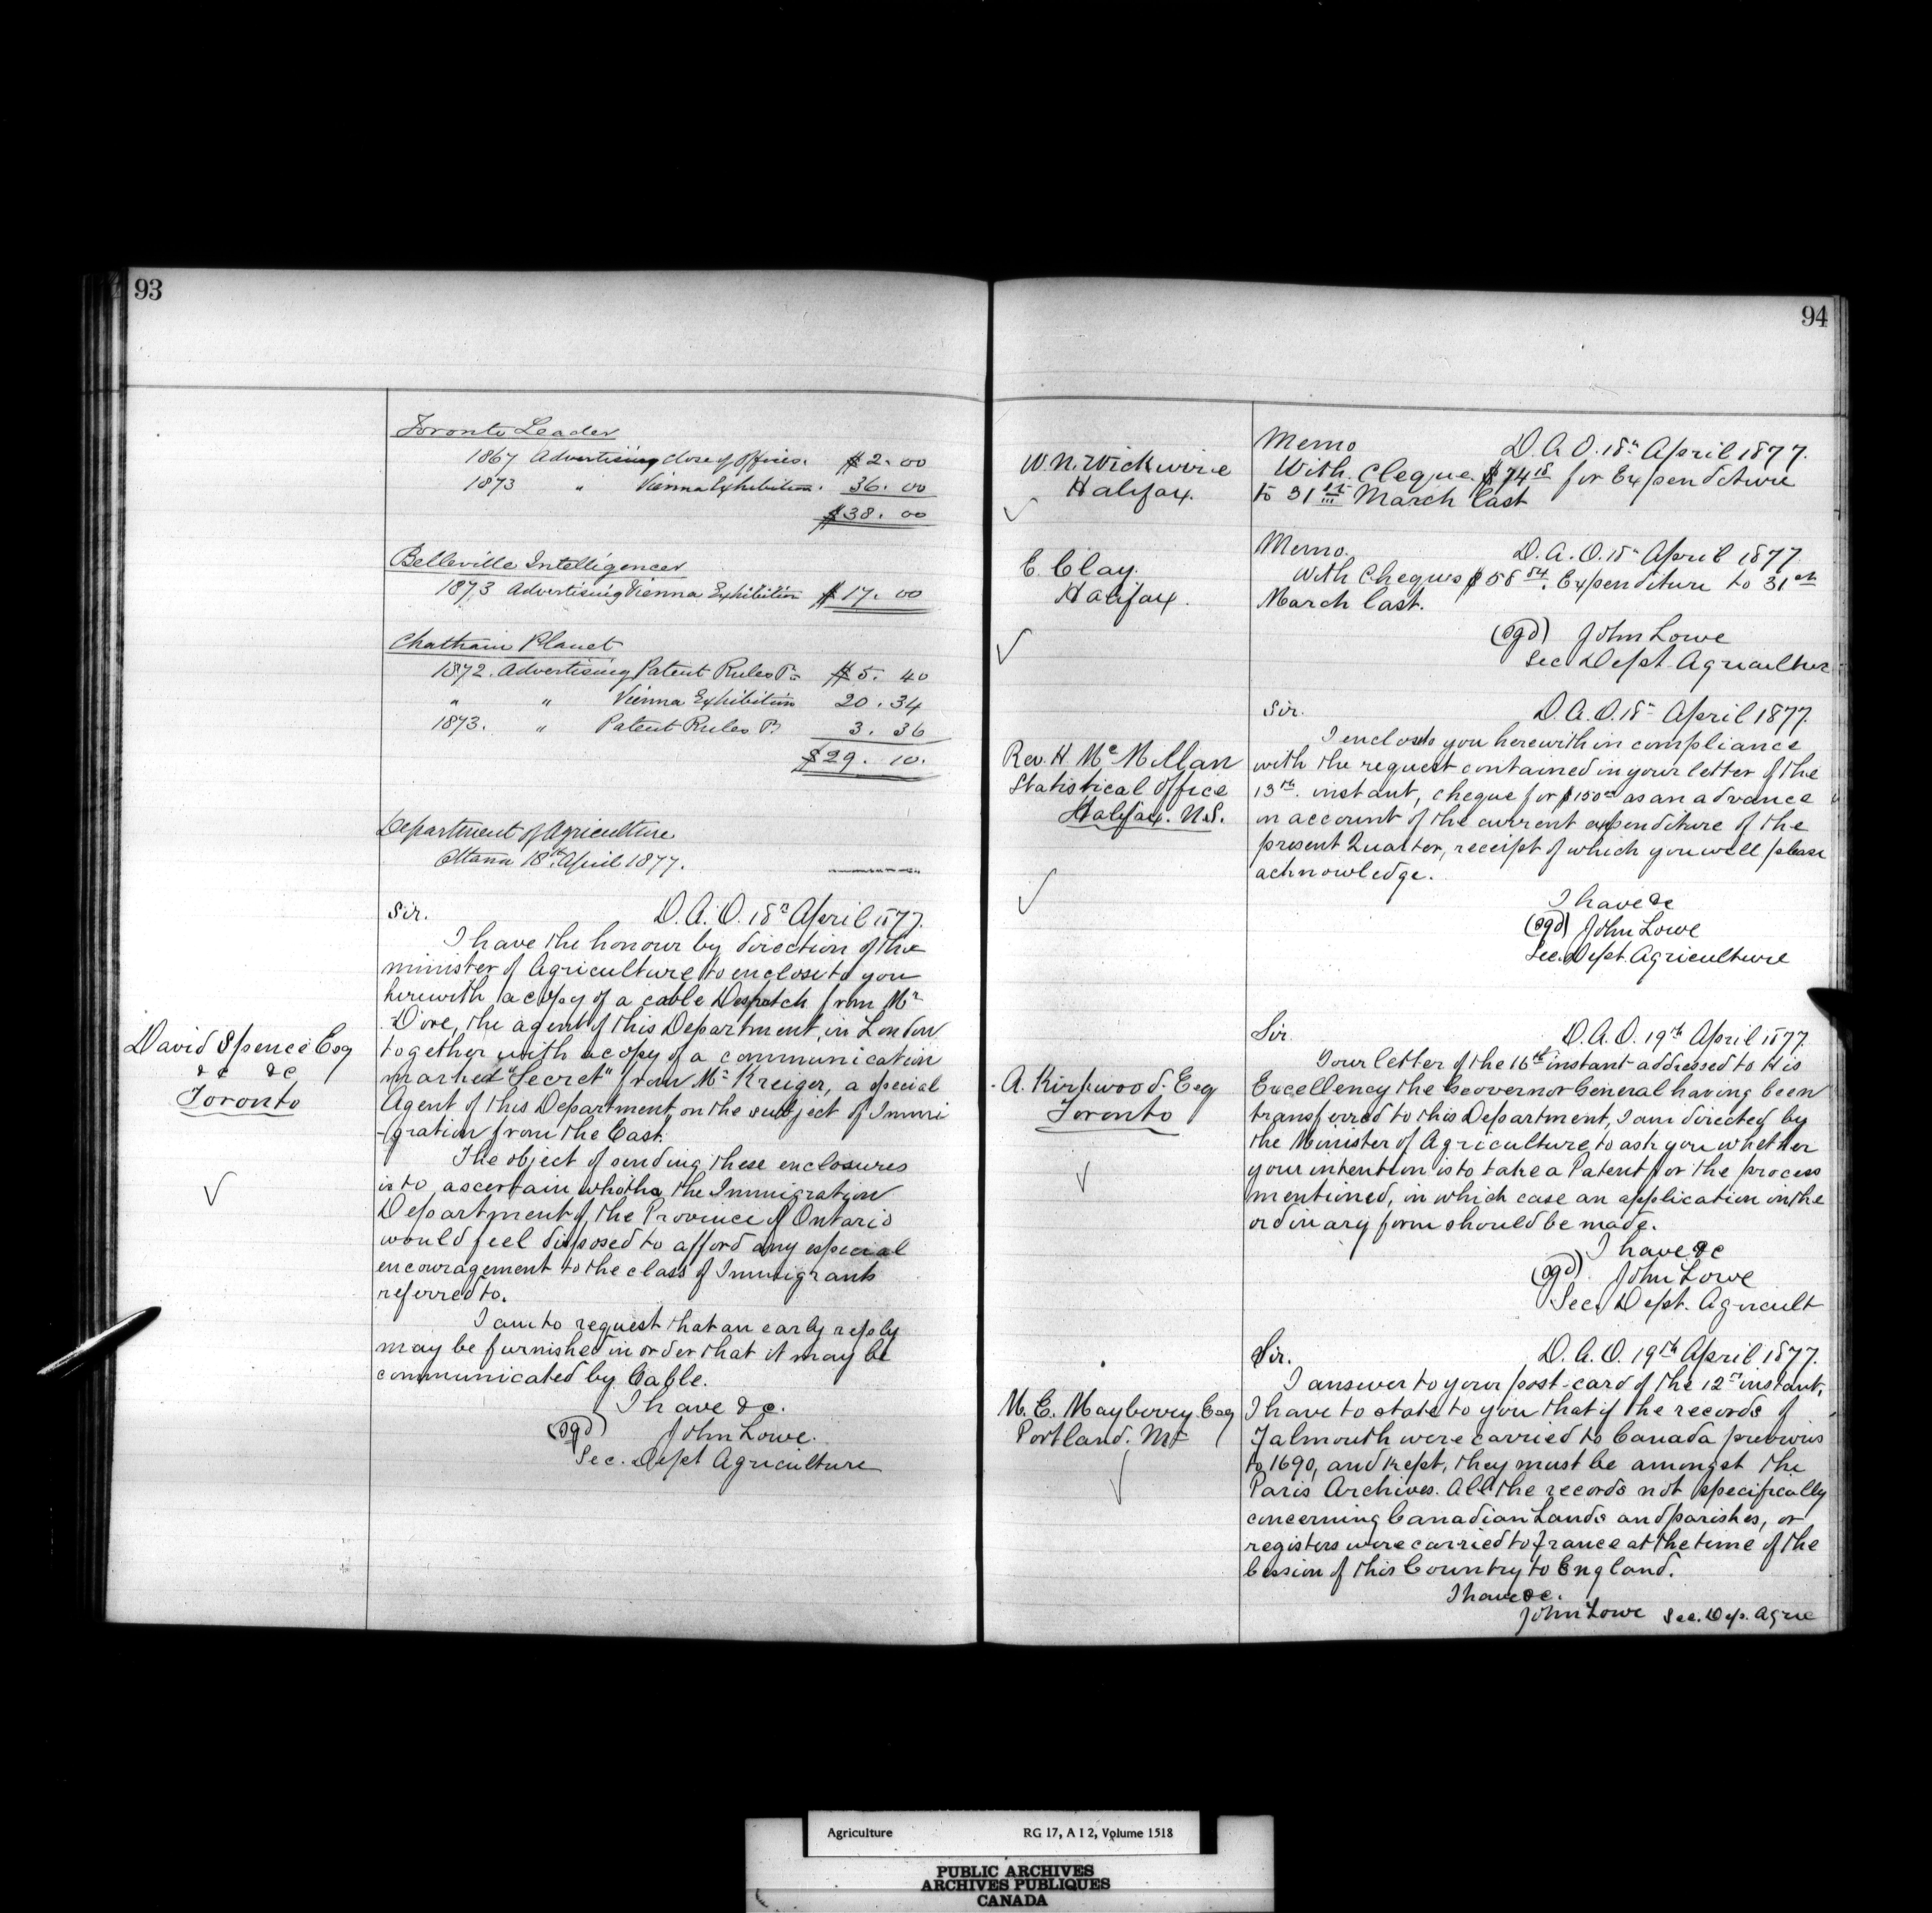 93
Toronto Leader
1867 Advertising close of Offices. $2.00
1873 " Vienna Exhibition. 36.00
$38.00
Belleville Intelligencer
1873 Advertising Vienna Exhibition $17.00
Chatham Planet
1872. Advertising Patent Rules $5.40
" " Vienna Exhibition 20.34
1873. " Patent Rules 3.36
$29.10.
Department of Agriculture
Ottawa 18th April 1877.
David Spence Esq
&c &c
Toronto
Sir. D. A. O. 18th April 1877.
I have the honour by direction of the
minister of Agriculture to enclose to you
herewith a copy of a cable Despatch from Mr
Dore, the agent of this Department, in London
together with a copy of a communication
marked "Secret" from Mr Kreiger, a special
Agent of this Department, on the subject of Immi
-gration from the East.
The object of sending these enclosures
is to ascertain whether the Immigration
Department of the Province of Ontario
would feel disposed to afford any especial
encouragement to the class of Immigrants
referred to.
I am to request that an early reply
may be furnished in order that it may be
communicated by Cable.
I have &c.
(sgd) John Lowe.
Sec. Dept Agriculture
94
W. N. Wickwire
Halifax.
Memo D. A. O. 18th April 1877.
With Cheque $74 18 for Expenditure
to 31st March last
E. Clay.
Halifax.
Memo. D. A. O. 18th April 1877.
With Cheques $58 84. Expenditure to 31st
March last.
(sgd) John Lowe
Sec Dept Agricultur
Rev. H. McMillan
Statistical Office
Halifax. N.S.
Sir. D. A. O. 18th April 1877.
I enclose to you herewith in compliance
with the request contained in your letter of the
13th. instant, cheque for $150 as an advance
on account of the current expenditure of the
present Quarter, receipt of which you will please
acknowledge.
I have &c
(sgd) John Lowe
Sec. Dept. Agriculture
A. Kirkwood. Esq
Toronto
Sir. D. A. O. 19th April 1877.
Your letter of the 16th instant addressed to His
Excellency the Governor General having been
transferred to this Department, I am directed by
the Minister of Agriculture to ask you whether
your intention is to take a Patent for the process
mentioned, in which case an application in the
ordinary form should be made.
I have &c
(sgd) John Lowe
Sec. Dept. Agricult
M. E. Mayberry Esq
Portland. Me
Sir. D. A. O. 19th April 1877.
I answer to your post-card of the 12th instant,
I have to state to you that if the records of
Falmouth were carried to Canada previous
to 1690, and kept, they must be amongst the
Paris Archives. All the records not specifically
concerning Canadian Lands and parishes, or
registers were carried to France at the time of the
Cession of this Country to England.
I have &c.
John Lowe Sec. Dep. Agric
Agriculture RG 17, A I 2, Volume 1518
PUBLIC ARCHIVES
ARCHIVES PUBLIQUES
CANADA